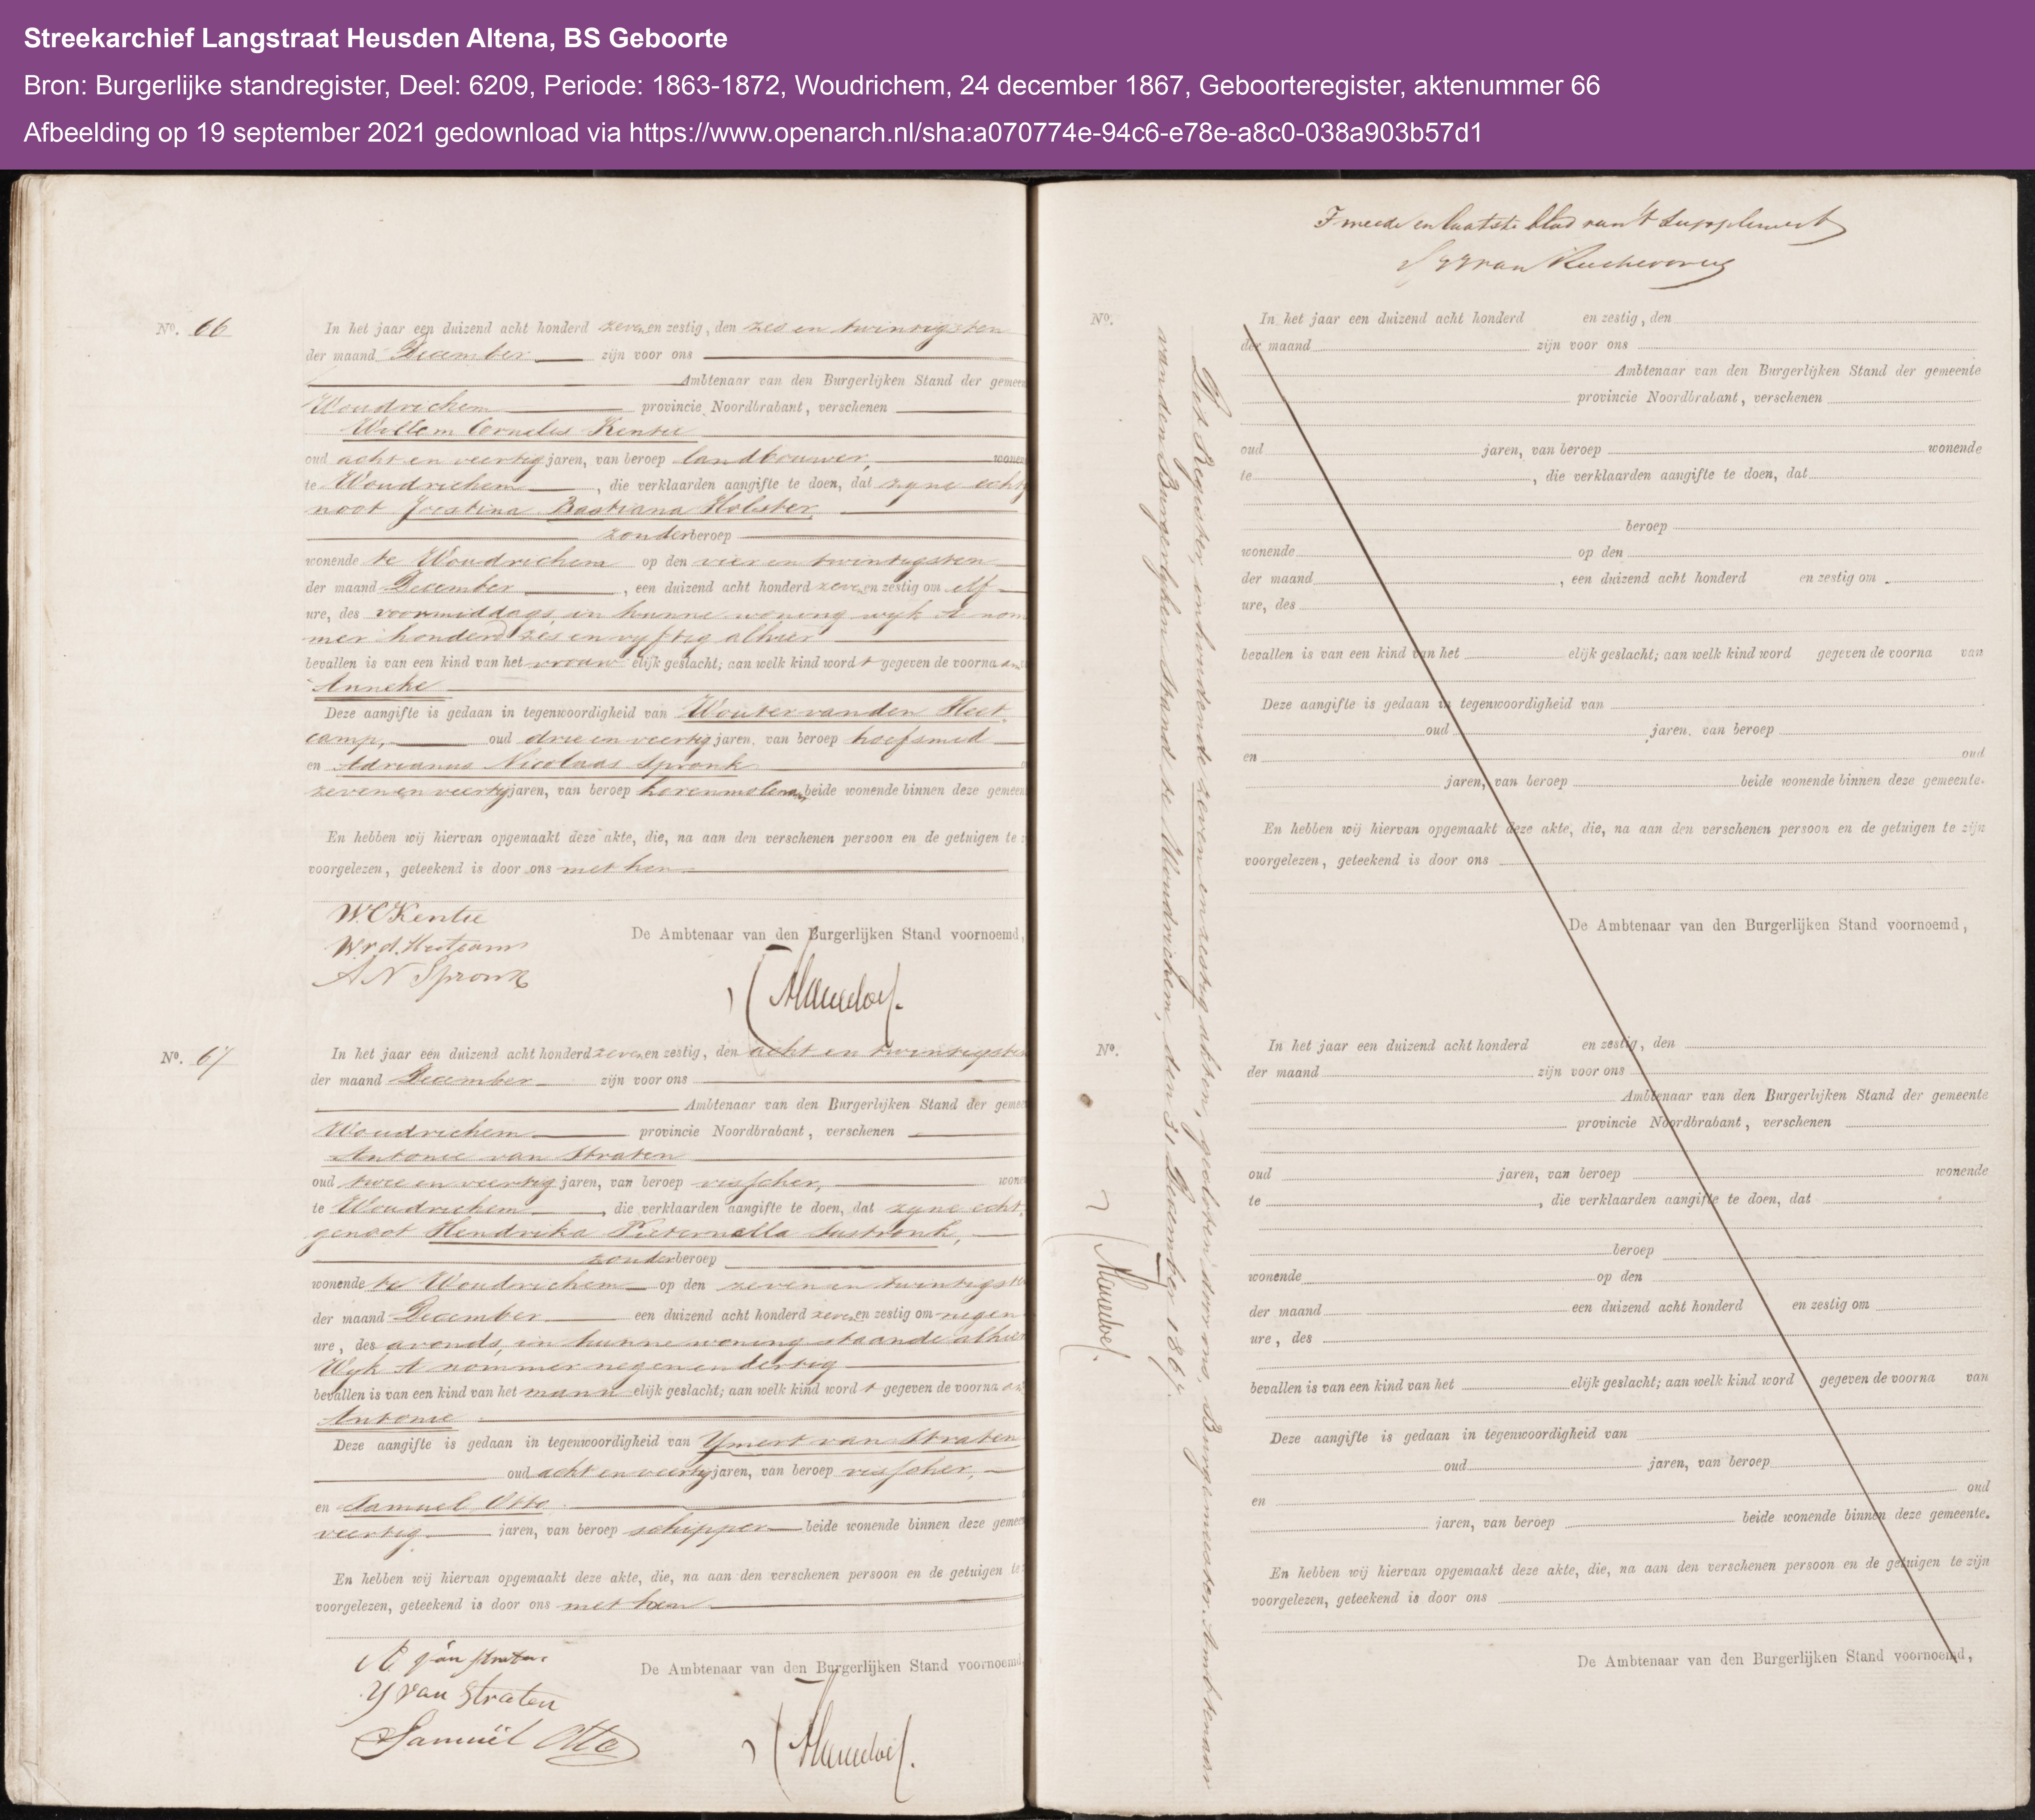 Streekarchief Langstraat Heusden Altena, BS Geboorte
Bron: Burgerlijke standregister, Deel: 6209, Periode: 1863-1872, Woudrichem, 24 december 1867, Geboorteregister, aktenummer 66
Afbeelding op 19 september 2021 gedownload via https://www.openarch.nl/sha:a070774e-94c6-e78e-a8c0-038a903b57d1
No. 66
In het jaar een duizend acht honderd zeven en zestig, den zes en twintigsten
der maand December zijn voor ons
Ambtenaar van den Burgerlijken Stand der gemeen
Woudrichem provincie Noordbrabant, verschenen
Willem Cornelis Kentie
oud acht en veertig jaren, van beroep landbouwer, wonen
te Woudrichem, die verklaarden aangifte te doen, dat zyne echtg
noot Justina Bastiana Holster
zonder beroep
wonende te Woudrichem op den vier en twintigsten
der maand December, een duizend acht honderd zeven en zestig om elf
ure, des voormiddags, in hunne woning wyk A nom
mer honderd zes en vyftig alhier
bevallen is van een kind van het vrouwelijk geslacht; aan welk kind wordt gegeven de voorna
Anneke
Deze aangifte is gedaan in tegenwoordigheid van Wouter van den Heet
camp, oud drie en veertig jaren, van beroep hoefsmid
en Adrianus Nicolaas Spronk
zeven en veertig jaren, van beroep korenmolenaar, beide wonende binnen deze gemeen
En hebben wij hiervan opgemaakt deze akte, die, na aan den verschenen persoon en de getuigen te
voorgelezen, geteekend is door ons met hen
W.C Kentie
De Ambtenaar van den Burgerlijken Stand voornoemd,
A N Spronk
No. 67
In het jaar een duizend acht honderd zeven en zestig, den acht en twintigsten
der maand December zijn voor ons
Ambtenaar van den Burgerlijken Stand der gemeen
Woudrichem provincie Noordbrabant, verschenen
Antonie van Straten
oud twee en veertig jaren, van beroep visscher, wonen
te Woudrichem, die verklaarden aangifte te doen, dat zyne echt
genoot Hendrika Pieternella Sustronk,
zonder beroep
wonende te Woudrichem op den zeven en twintigst
der maand December een duizend acht honderd zeven en zestig om negen
ure, des avonds, in hunne woning staande alhier
Wyk A nommer negen en dertig
bevallen is van een kind van het mannelijk geslacht; aan welk kind wordt gegeven de voorna
Antonie
Deze aangifte is gedaan in tegenwoordigheid van Ymert van Straten
oud acht en veertig jaren, van beroep visscher,
en Samuel Otto
veertig jaren, van beroep schipper beide wonende binnen deze gemeen
En hebben wij hiervan opgemaakt deze akte, die, na aan den verschenen persoon en de getuigen te
voorgelezen, geteekend is door ons met hen
A van Straten
De Ambtenaar van den Burgerlijken Stand voornoemd,
Y van Straten
Samuël Otto
Tweede en laatste blad van 't Supplement
No.
In het jaar een duizend acht honderd en zestig, den
der maand zijn voor ons
Ambtenaar van den Burgerlijken Stand der gemeente
provincie Noordbrabant, verschenen
oud jaren, van beroep wonende
te , die verklaarden aangifte te doen, dat
beroep
wonende op den
der maand , een duizend acht honderd en zestig om
ure, des
bevallen is van een kind van het elijk geslacht; aan welk kind word gegeven de voorna van
Deze aangifte is gedaan in tegenwoordigheid van
oud jaren, van beroep
en oud
jaren, van beroep beide wonende binnen deze gemeente.
En hebben wij hiervan opgemaakt deze akte, die, na aan den verschenen persoon en de getuigen te zijn
voorgelezen, geteekend is door ons
De Ambtenaar van den Burgerlijken Stand voornoemd,
No.
In het jaar een duizend acht honderd en zestig, den
der maand zijn voor ons
Ambtenaar van den Burgerlijken Stand der gemeente
provincie Noordbrabant, verschenen
oud jaren, van beroep wonende
te , die verklaarden aangifte te doen, dat
beroep
wonende op den
der maand een duizend acht honderd en zestig om
ure, des
bevallen is van een kind van het elijk geslacht; aan welk kind word gegeven de voorna van
Deze aangifte is gedaan in tegenwoordigheid van
oud jaren, van beroep
en oud
jaren, van beroep beide wonende binnen deze gemeente.
En hebben wij hiervan opgemaakt deze akte, die, na aan den verschenen persoon en de getuigen te zijn
voorgelezen, geteekend is door ons
De Ambtenaar van den Burgerlijken Stand voornoemd,
Dit Register, inhoudende zeven en zestig akten, gesloten door ons, Burgemeester Ambtenaar
van den Burgerlyken Stand te Woudrichem, den 31 December 1867.